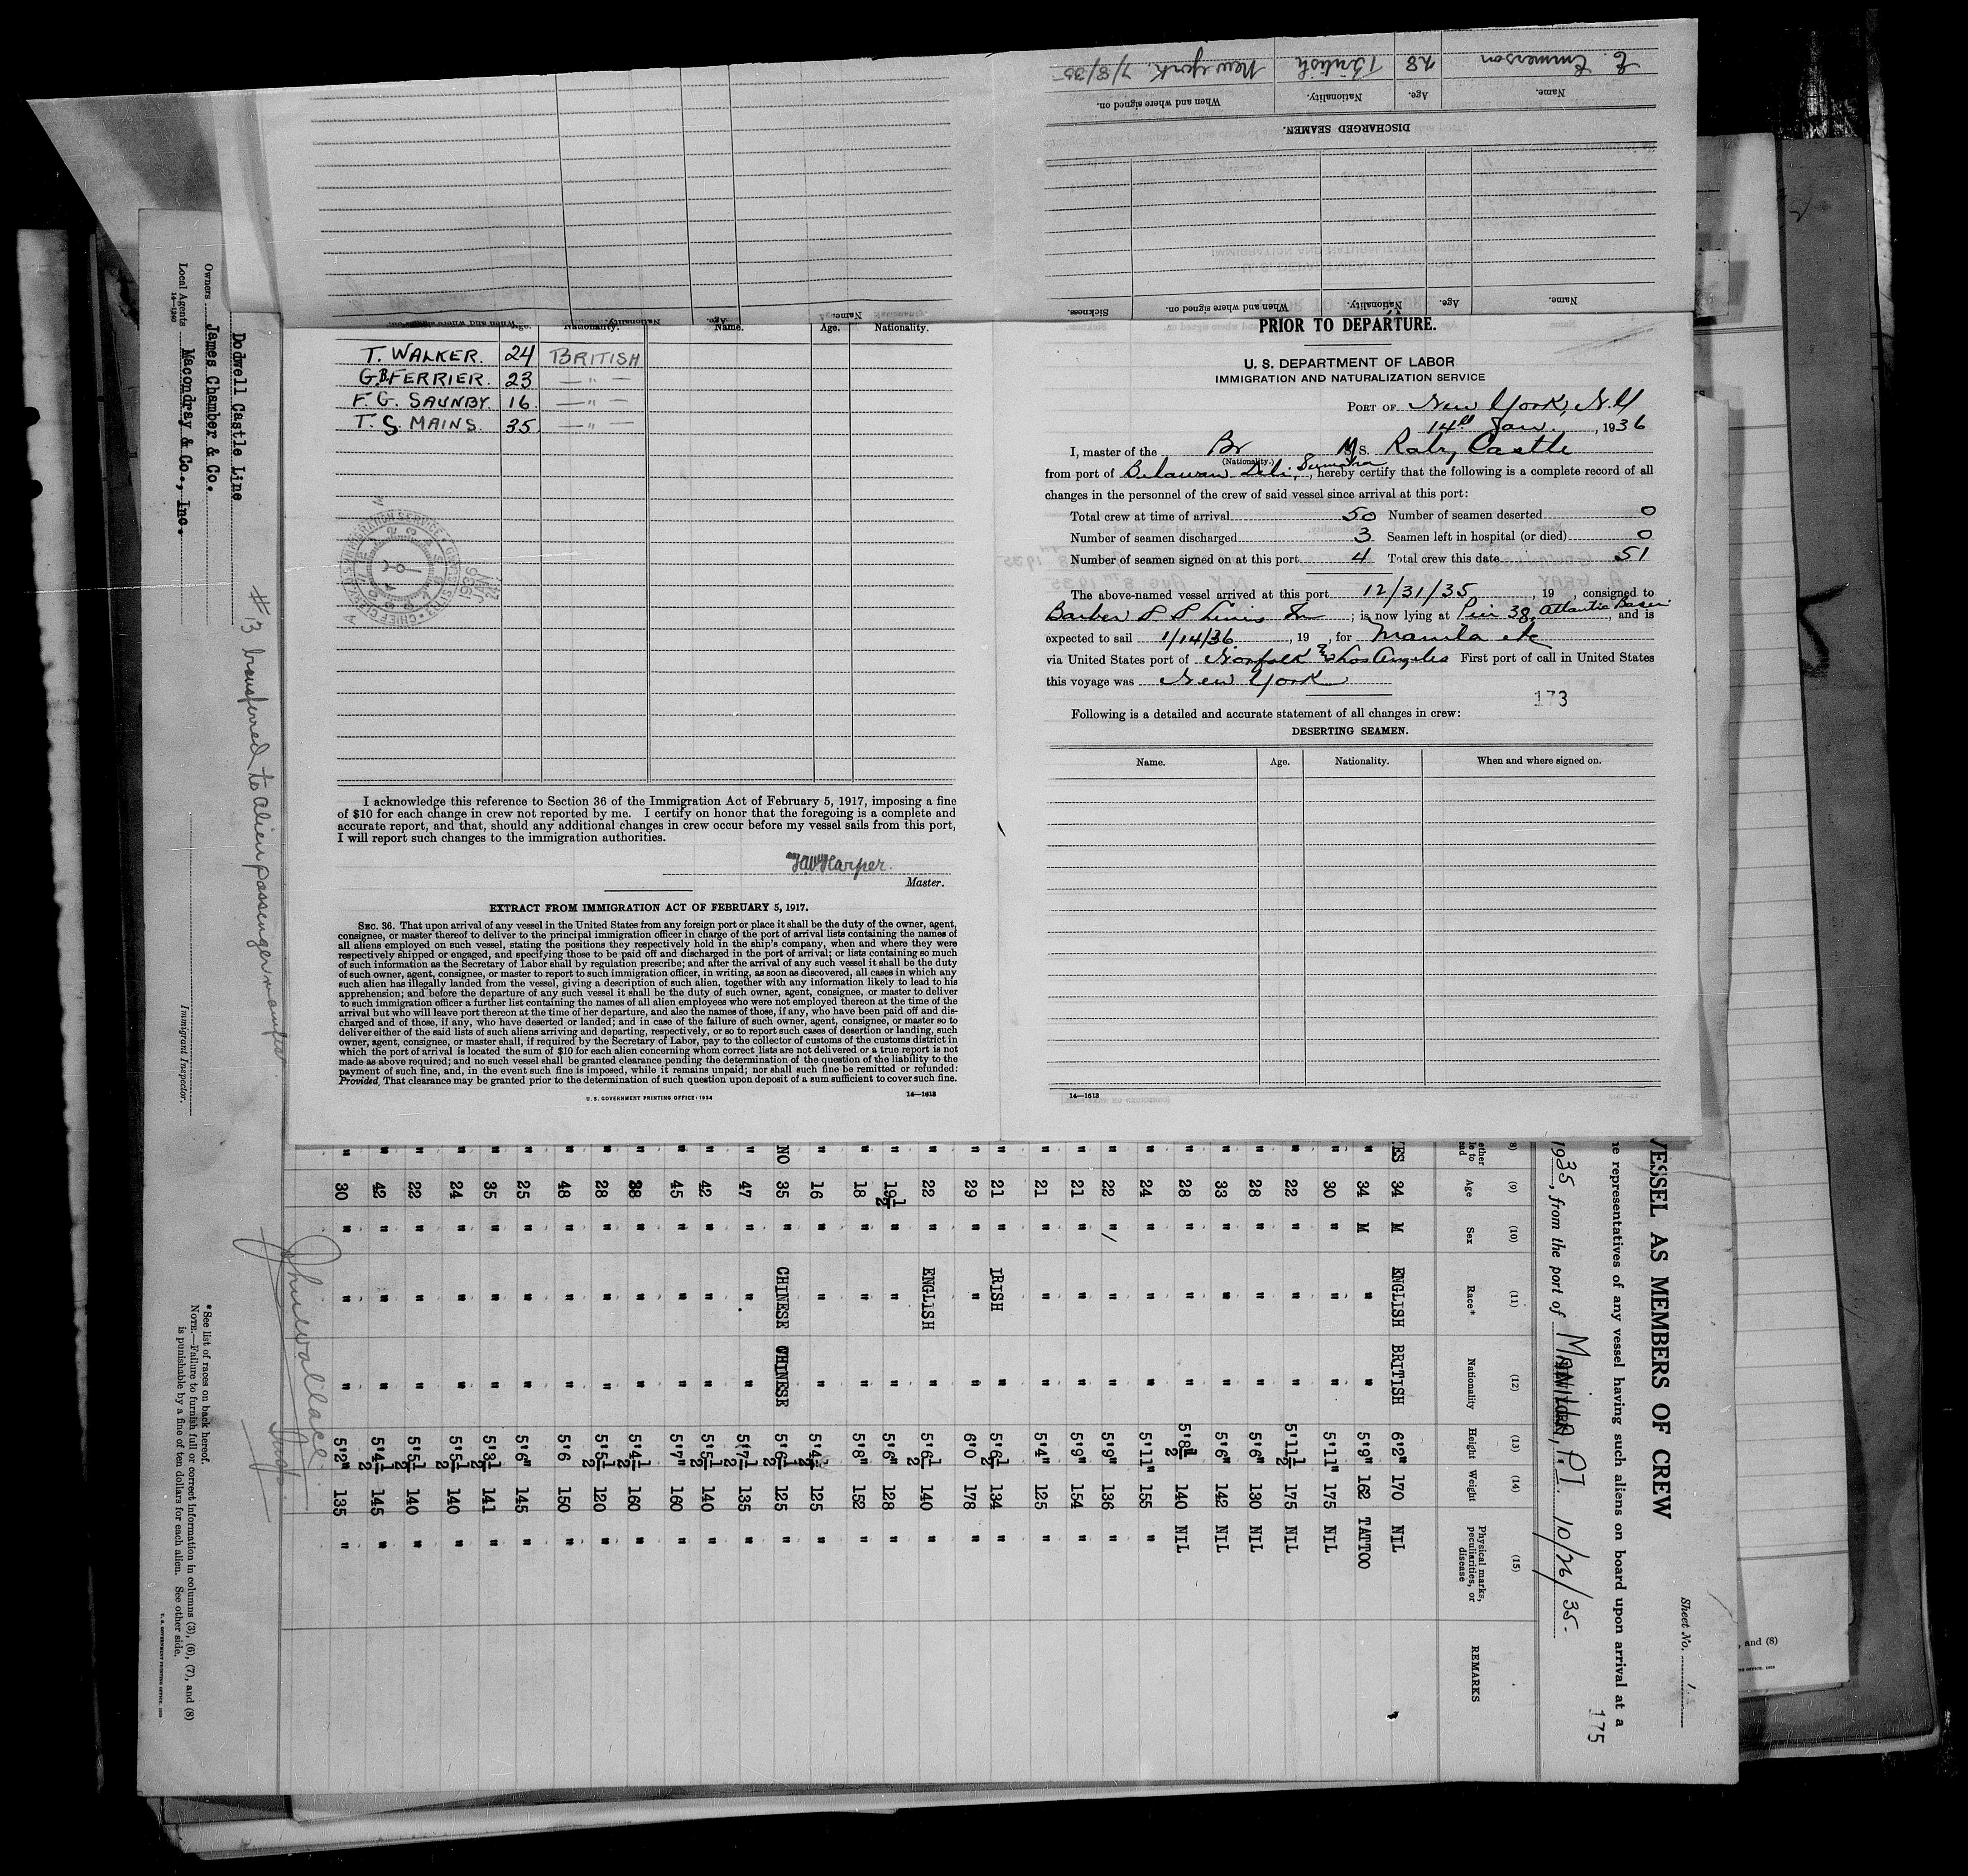 E. Emmerson 28 British New York. 7/8/35
Name. Age. Nationality. When and where signed on.
DISCHARGED SEAMEN.
Name. Age. Nationality. When and where signed on. Sickness.
Age. Nationality. Name. Age. Nationality.
T. WALKER. 24 BRITISH
G.B. FERRIER. 23 — " —
F. G. SAUNBY. 16 — " —
T. S. MAINS. 35 — " —
I acknowledge this reference to Section 36 of the Immigration Act of February 5, 1917, imposing a fine
of $10 for each change in crew not reported by me. I certify on honor that the foregoing is a complete and
accurate report, and that, should any additional changes in crew occur before my vessel sails from this port,
I will report such changes to the immigration authorities.
Harper.
Master.
EXTRACT FROM IMMIGRATION ACT OF FEBRUARY 5, 1917.
SEC. 36. That upon arrival of any vessel in the United States from any foreign port or place it shall be the duty of the owner, agent,
consignee, or master thereof to deliver to the principal immigration officer in charge of the port of arrival lists containing the names of
all aliens employed on such vessel, stating the positions they respectively hold in the ship's company, when and where they were
respectively shipped or engaged, and specifying those to be paid off and discharged in the port of arrival; or lists containing so much
of such information as the Secretary of Labor shall by regulation prescribe; and after the arrival of any such vessel it shall be the duty
of such owner, agent, consignee, or master to report to such immigration officer, in writing, as soon as discovered, all cases in which any
such alien has illegally landed from the vessel, giving a description of such alien, together with any information likely to lead to his
apprehension; and before the departure of any such vessel it shall be the duty of such owner, agent, consignee, or master to deliver
to such immigration officer a further list containing the names of all alien employees who were not employed thereon at the time of the
arrival but who will leave port thereon at the time of her departure, and also the names of those, if any, who have been paid off and dis-
charged and of those, if any, who have deserted or landed; and in case of the failure of such owner, agent, consignee, or master so to
deliver either of the said lists of such aliens arriving and departing, respectively, or so to report such cases of desertion or landing, such
owner, agent, consignee, or master shall, if required by the Secretary of Labor, pay to the collector of customs of the customs district in
which the port of arrival is located the sum of $10 for each alien concerning whom correct lists are not delivered or a true report is not
made as above required; and no such vessel shall be granted clearance pending the determination of the question of the liability to the
payment of such fine, and, in the event such fine is imposed, while it remains unpaid; nor shall such fine be remitted or refunded:
Provided, That clearance may be granted prior to the determination of such question upon deposit of a sum sufficient to cover such fine.
U. S. GOVERNMENT PRINTING OFFICE: 1934 14—1613
PRIOR TO DEPARTURE.
U. S. DEPARTMENT OF LABOR
IMMIGRATION AND NATURALIZATION SERVICE
PORT OF New York, N.Y
14th Jan., 1936
I, master of the Br M/S. Raby Castle
(Nationality.)
from port of Belawan Deli, Sumatra, hereby certify that the following is a complete record of all
changes in the personnel of the crew of said vessel since arrival at this port:
Total crew at time of arrival 50 Number of seamen deserted 0
Number of seamen discharged 3 Seamen left in hospital (or died) 0
Number of seamen signed on at this port 4 Total crew this date 51
The above-named vessel arrived at this port 12/31/35, 19 , consigned to
Barber S S Lines Inc ; is now lying at Pier 38 Atlantic Basin, and is
expected to sail 1/14/36, 19 , for Manila etc
via United States port of Norfolk & Los Angeles First port of call in United States
this voyage was New York
173
Following is a detailed and accurate statement of all changes in crew:
DESERTING SEAMEN.
Name. Age. Nationality. When and where signed on.
14—1613
Dodwell Castle Line
Owners James Chamber & Co.
Local Agents Macondray & Co., Inc.
14—1240
#13 transferred to alien passenger manifest
Immigrant Inspector.
*See list of races on back hereof.
NOTE.—Failure to furnish full or correct information in columns (3), (6), (7), and (8)
is punishable by a fine of ten dollars for each alien. See other side.
Sheet No. 1
175
VESSEL AS MEMBERS OF CREW
representatives of any vessel having such aliens on board upon arrival at a
1935, from the port of Manila, P.I. 10/26/35.
(9) (10) (11) (12) (13) (14) (15)
Age Sex Race* Nationality Height Weight Physical marks, peculiarities, or disease REMARKS
YES 34 M ENGLISH BRITISH 6'2" 170 NIL
" 34 M " " 5'9" 162 TATTOO
" 30 " " " 5'11" 175 NIL
" 22 " " " 5'11½ 175 NIL
" 28 " " " 5'6" 130 NIL
" 33 " " " 5'6" 142 NIL
" 28 " " " 5'8½ 140 NIL
" 24 " " " 5'11" 155 "
" 22 " " " 5'9" 136 "
" 21 " " " 5'9" 154 "
" 21 " " " 5'4" 125 "
" 21 " IRISH " 5'6½ 134 "
" 29 " " " 6'0 178 "
" 22 " ENGLISH " 5'6½ 140 "
" 19½ " " " 5'6" 128 "
" 18 " " " 5'8" 152 "
" 16 " " " 5'4½ 125 "
NO 35 " CHINESE CHINESE 5'6½ 125 "
" 47 " " " 5'7½ 135 "
" 42 " " " 5'5½ 140 "
" 45 " " " 5'7" 160 "
" 38 " " " 5'4½ 160 "
" 28 " " " 5'5½ 120 "
" 48 " " " 5'6 150 "
" 25 " " " 5'6" 145 "
" 35 " " " 5'3½ 141 "
" 24 " " " 5'5½ 140 "
" 22 " " " 5'5½ 140 "
" 42 " " " 5'4½ 145 "
" 30 " " " 5'2" 135 "
, and (8)